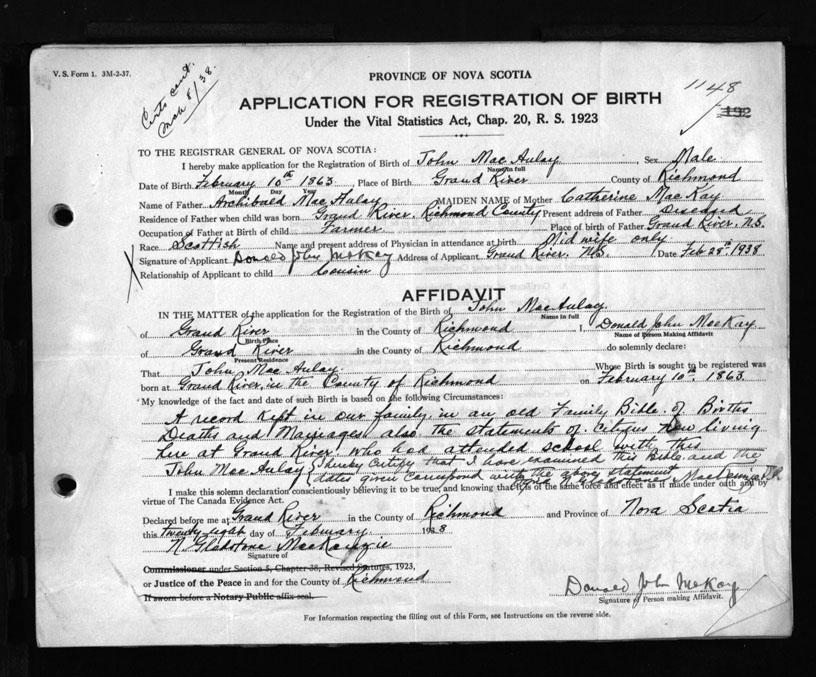 V. S. Form 1. 3M-2-37.
Certs sent.
Mch 8/38.
PROVINCE OF NOVA SCOTIA
1148
192
APPLICATION FOR REGISTRATION OF BIRTH
Under the Vital Statistics Act, Chap. 20, R. S. 1923
TO THE REGISTRAR GENERAL OF NOVA SCOTIA:
I hereby make application for the Registration of Birth of John MacAulay Sex Male
Name in full
Date of Birth February 10th 1863 Place of Birth Grand River County of Richmond
Month Day Year
Name of Father Archibald MacAulay MAIDEN NAME of Mother Catherine MacKay
Residence of Father when child was born Grand River, Richmond County Present address of Father Diseased
Occupation of Father at Birth of child Farmer Place of birth of Father Grand River, N.S.
Race Scottish Name and present address of Physician in attendance at birth Mid wife only
Signature of Applicant Donald John McKay Address of Applicant Grand River. N.S. Date Feb 28th 1938
Relationship of Applicant to child Cousin
AFFIDAVIT
IN THE MATTER of the application for the Registration of the Birth of John MacAulay.
Name in full
of Grand River in the County of Richmond I, Donald John MacKay
Birth Place Name of Person Making Affidavit
of Grand River in the County of Richmond do solemnly declare:
Present Residence
That John MacAulay Whose Birth is sought to be registered was
born at Grand River, in the County of Richmond on February 10th 1863.
My knowledge of the fact and date of such Birth is based on the following Circumstances:
A record kept in our family, in an old Family Bible. of Births
Deaths and Marriages, also the statements of Citizens now living
here at Grand River. who had attended school with this
John MacAulay I hereby Certify that I have examined this Bible and the
dates given Correspond with the above statement
N Gladstone MacKenzie J.P.
I make this solemn declaration conscientiously believing it to be true, and knowing that it is of the same force and effect as if made under oath and by
virtue of The Canada Evidence Act.
Declared before me at Grand River in the County of Richmond and Province of Nova Scotia
this twenty eight day of February 1938
N Gladstone MacKenzie
Signature of
Commissioner under Section 5, Chapter 38, Revised Statutes, 1923,
or Justice of the Peace in and for the County of Richmond
If sworn before a Notary Public affix seal.
Donald John McKay
Signature of Person making Affidavit.
For Information respecting the filling out of this Form, see Instructions on the reverse side.